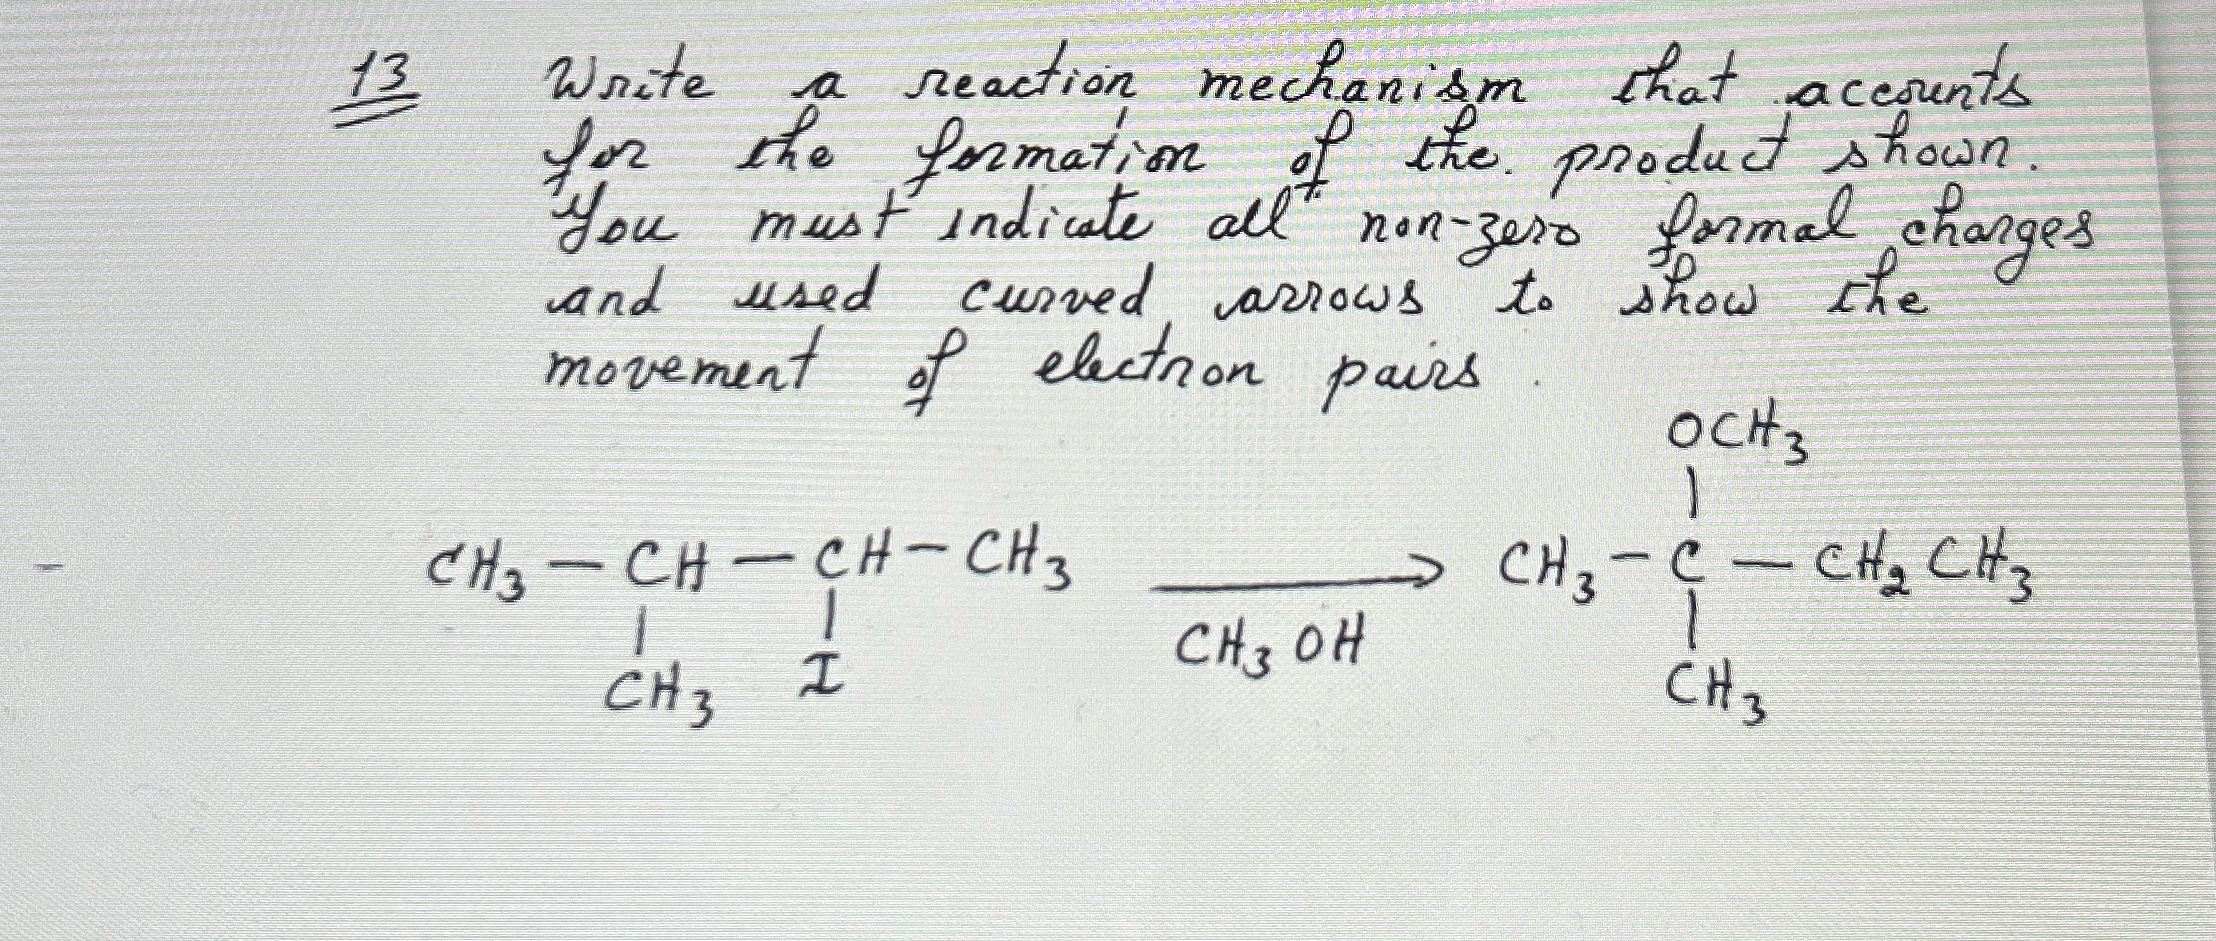 13 Write a reaction mechanism that accounts
for the formation of the product shown.
You must indicate all non-zero formal charges
and used curved arrows to show the
movement of electron pairs.
OCH3
CH3 — CH — CH — CH3 → CH3 — C — CH2 CH3
CH3 I CH3OH CH3